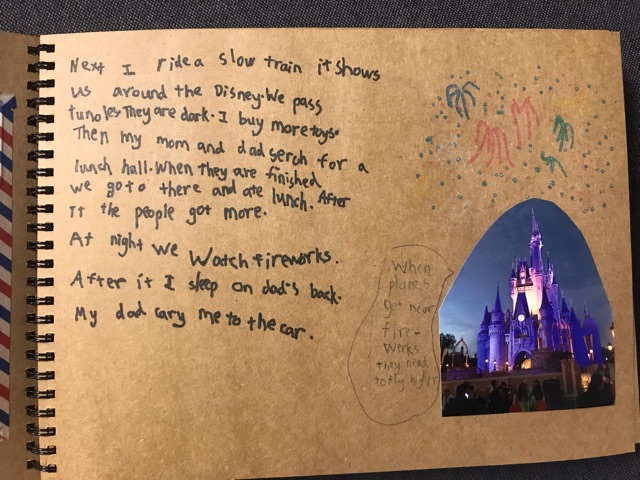 Next I ride a slow train it shows
us around the Disney. We pass
tunoles They are dark. I buy more toys.
Then my mom and dad serch for a
lunch hall. When they are finished
we go to there and ate lunch. After
it the people got more.
At night we Watch fireworks.
After it I sleep on dad's back.
My dad cary me to the car.
When
planes
got near
fire-
works
they nead
to fly higher